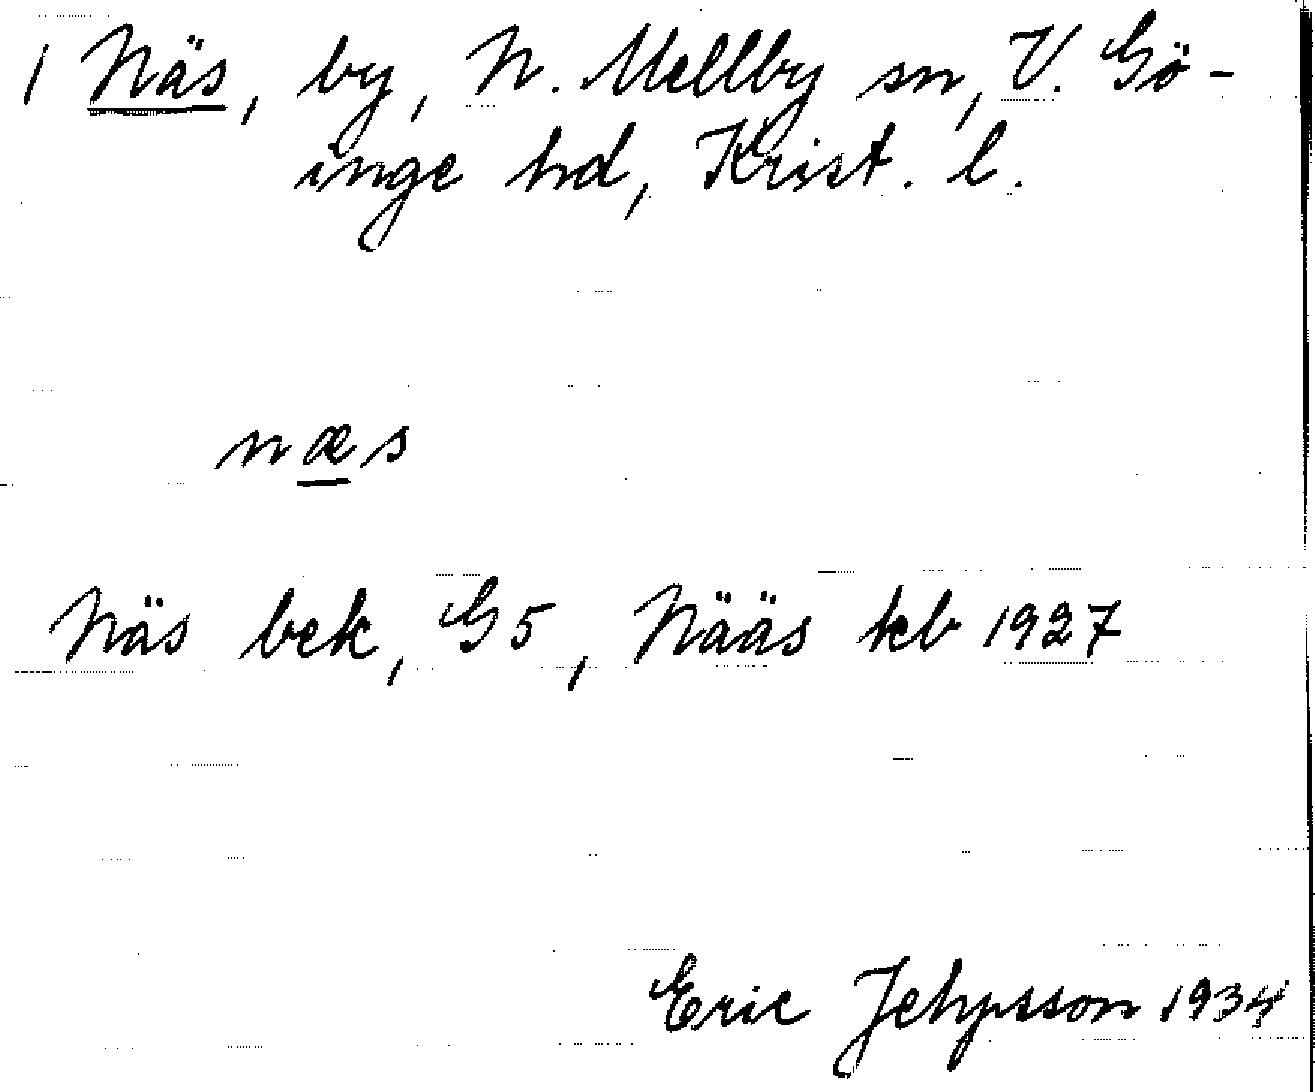 1 Näs, by, N. Mellby sn, V. Gö-
inge hd, Krist. l.
næs
Näs bek, G5, Nääs kb 1927
Eric Jehpsson 1934